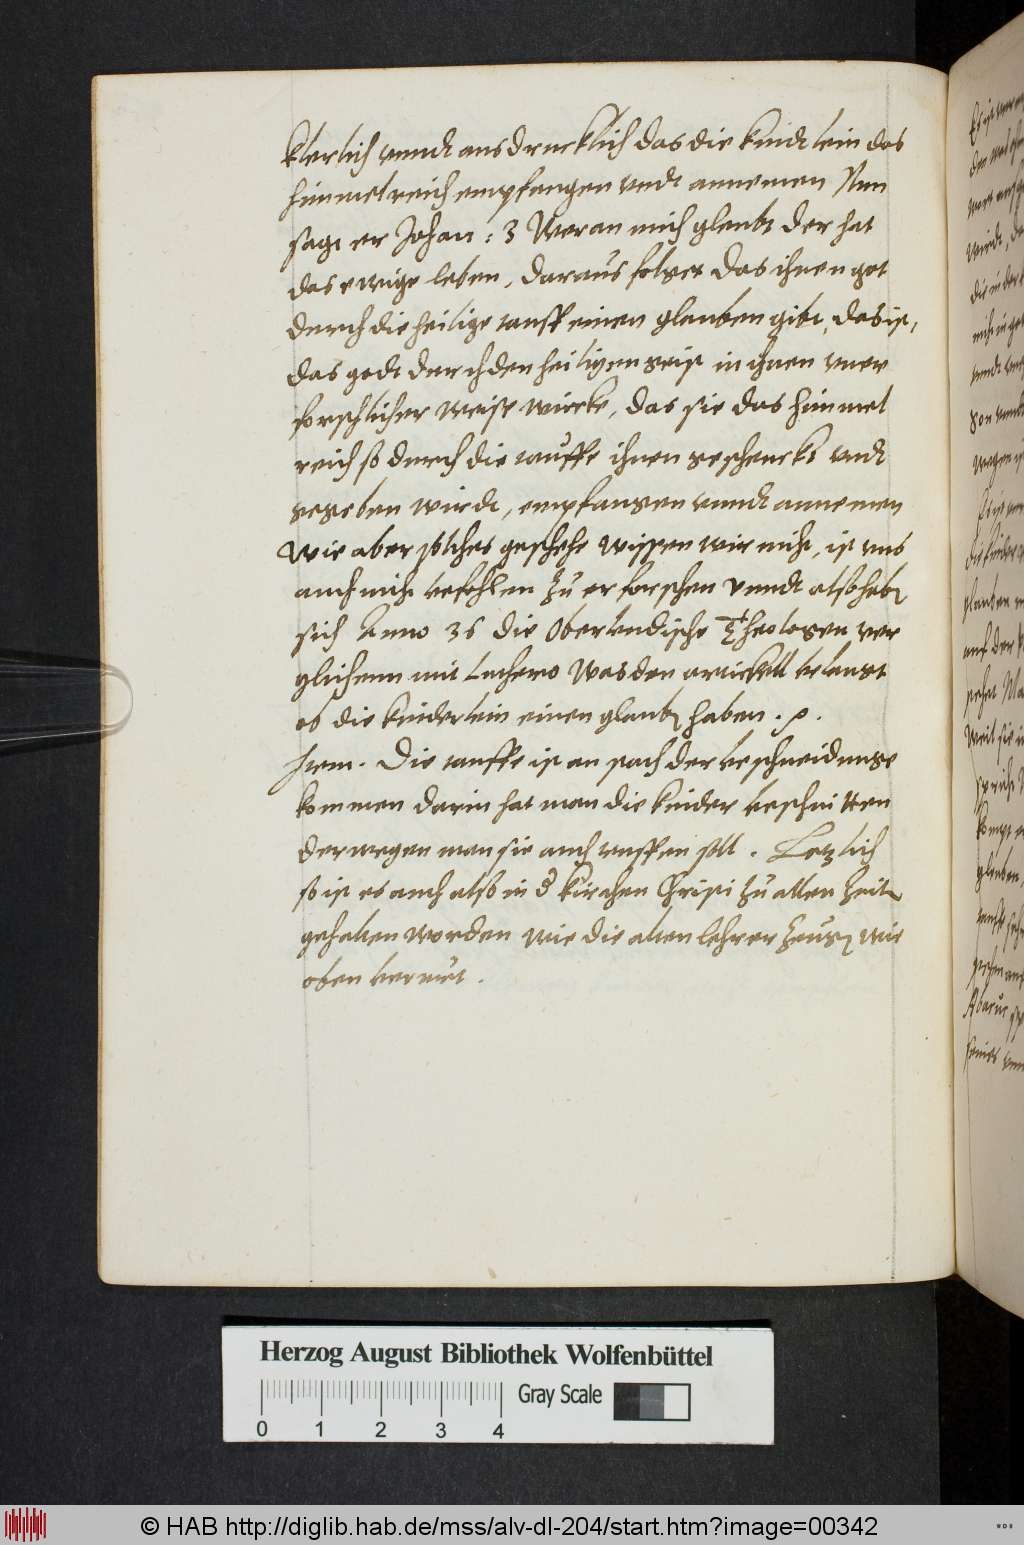 klerlich vnndt ausdrucklich das die kindtlein das
himmelreich empfangen vndt annemen Nun
sagt er Johan : 3 Wer an mich gleubt der hat
das ewige leben, daraus folget das ihnen got
durch die heilige tauff einen glauben gibt, das ist,
das godt durch den heiligen geist in ihnen vner
forschlicher weise wircke, das sie das himmel
reich so durch die tauffe ihnen geschenckt vndt
gegeben wurdt, empfangen vnndt annemen
Wie aber solches geschehe wissen wir nicht, ist vns
auch nicht befohlen zu erforschen vnndt also habē
sich Anno 36 die Oberlendische Theologen ver
glichenn mit Luthero Was den artickell belangt
ob die kinderlein einen glaubē haben . p .
Item . Die tauffe ist an stadt der beschneidunge
kommen darin hat man die kinder beschnitten
derwegen man sie auch tauffen soll . Letzlich
so ist es auch also in d kirchen Christi zu allen zeitē
gehalten worden wie die alten lehrer zeugē wie
oben berurt .
Herzog August Bibliothek Wolfenbüttel
Gray Scale
0 1 2 3 4
© HAB http://diglib.hab.de/mss/alv-dl-204/start.htm?image=00342